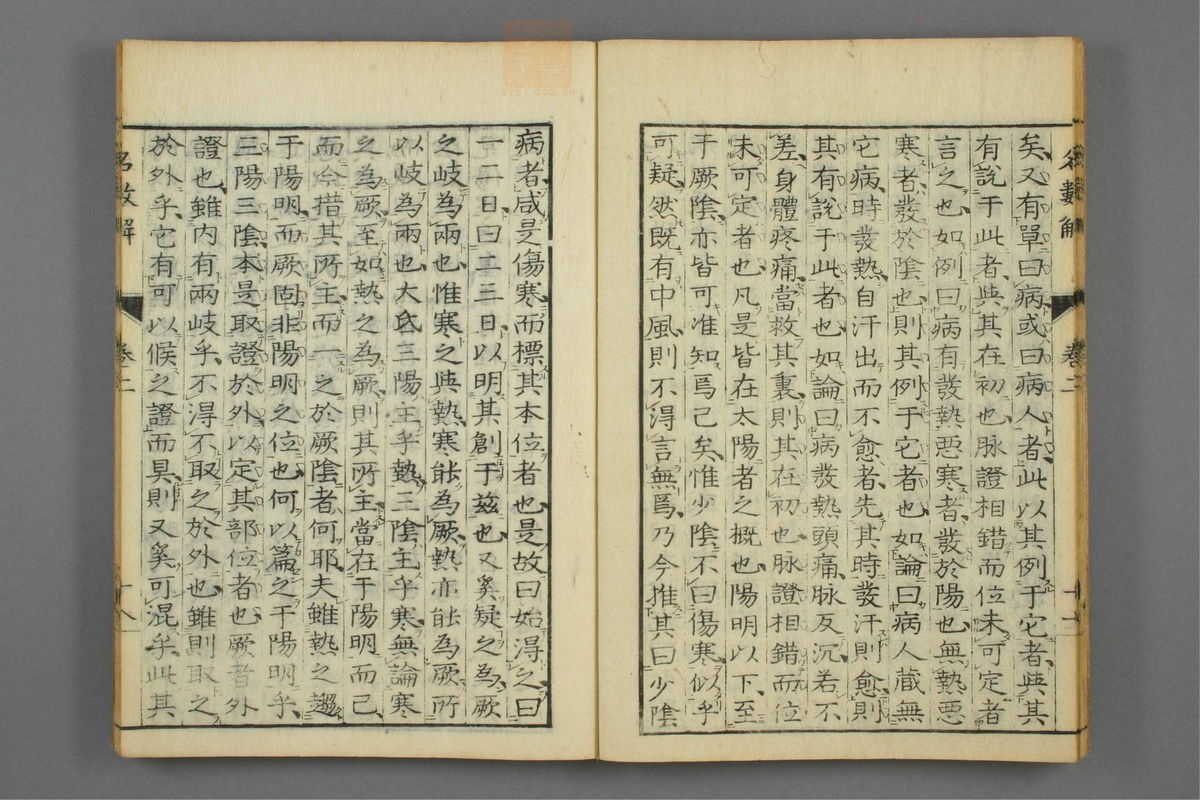 矣又有單曰病或曰病人者此以其例于它者與其
有說于此者與其在初也脉證相錯而位未可定者
言之也如例曰病有發熱惡寒者發於陽也無熱惡
寒者發於陰也則其例于它者也如論曰病人藏無
它病時發熱自汗出而不愈者先其時發汗則愈則
其有說于此者也如論曰病發熱頭痛脉反沉若不
差身體疼痛當救其裏則其在初也脉證相錯而位
未可定者也凡是皆在太陽者之概也陽明以下至
于厥陰亦皆可准知焉已矣惟少陰不曰傷寒似乎
可疑然既有中風則不得言無焉乃今推其曰少陰
名數解
卷二
十七
病者咸是傷寒而標其本位者也是故曰始得之曰
一二日曰二三日以明其創于茲也又奚疑之為厥
之岐為兩也惟寒之與熱寒能為厥熱亦能為厥所
以岐為兩也大氐三陽主乎熱三陰主乎寒無論寒
之為厥至如熱之為厥則其所主當在于陽明而已
而今措其所主而一之於厥陰者何耶夫雖熱之邇
于陽明而厥固非陽明之位也何以篇之于陽明乎
三陽三陰本是取證於外以定其部位者也厥者外
證也雖內有兩岐乎不得不取之於外也雖則取之
於外乎它有可以候之證而具則又奚可混乎此其
名數解
卷二
十八